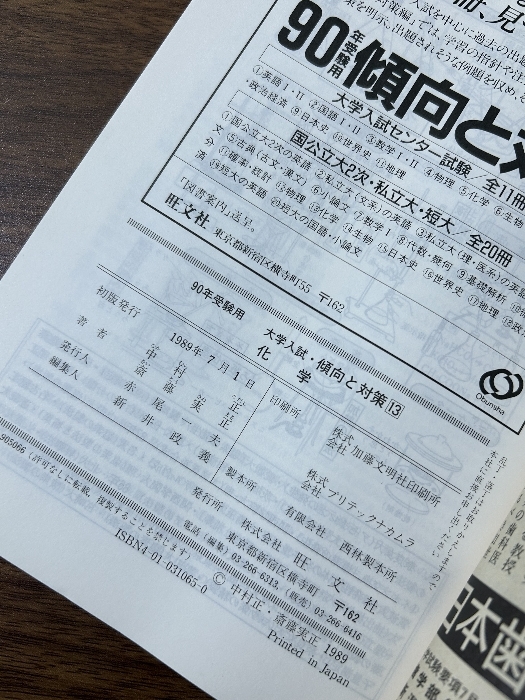 入試を中心に過去の出題
策を明示。出題されそうな例題を収め、
90年受験用 傾向と対
大学入試センター試験/全11冊
①英語Ⅰ・Ⅱ ②国語Ⅰ・Ⅱ ③数学Ⅰ・Ⅱ ④物理 ⑤化学 ⑥生物
・政治経済 ⑨日本史 ⑩世界史 ⑪地理
国公立大2次・私立大・短大/全20冊
①国公立大2次の英語 ②私立大(文系)の英語 ③私立大(理・医系)の英語
文 ⑤古典(古文・漢文) ⑥小論文 ⑦数学Ⅰ ⑧代数・幾何 ⑨基礎解析
分 ⑪確率・統計 ⑫物理 ⑬化学 ⑭生物 ⑮日本史 ⑯世界史 ⑰地理
済 ⑲短大の英語 ⑳短大の国語・小論文
「図書案内」送呈。
旺文社 東京都新宿区横寺町55 〒162
Obunsha
90年受験用 大学入試・傾向と対策13
化学
初版発行 1989年7月1日
著者 中村 正
斎藤実正
発行人 赤尾一夫
編集人 新井政義
印刷所 株式会社 加藤文明社印刷所
株式会社 プリテックナカムラ
製本所 有限会社 西林製本所
発行所 株式会社 旺文社
東京都新宿区横寺町 〒162
電話(編集)03-266-6313、(販売)03-266-6416
905066(許可なしに転載、複製することを禁じます)
ISBN4-01-031065-0
© 中村正・斎藤実正 1989
Printed in Japan
日本歯